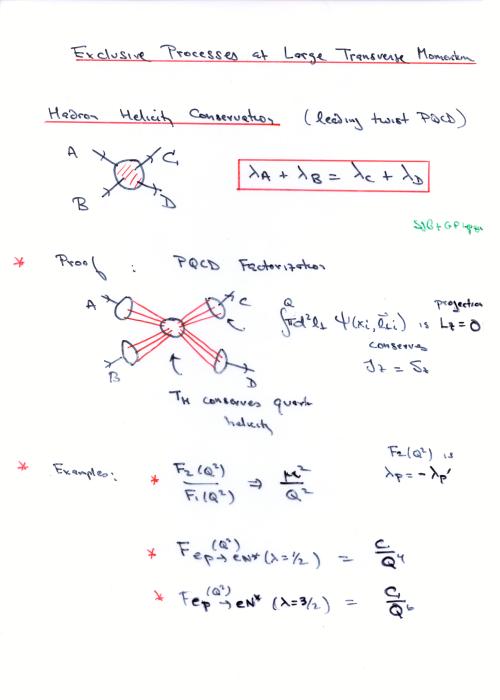 Exclusive Processes at Large Transverse Momentum
Hadron Helicity Conservation (leading twist PQCD)
A C
λA + λB = λC + λD
B D
SJB + GP Lepage
* Proof : PQCD Factorization
A C ∫^Q πd²l⊥ ψ(xi, l⊥i) is projection Lz = 0
conserves
B D Jz = Sz
TH conserves quark
helicity
* Examples: * F2(Q²)/F1(Q²) ⇒ μ²/Q² F2(Q²) is
λp = -λp'
* F ep→eN* (Q²) (λ=1/2) = C/Q⁴
* F ep→eN* (Q²) (λ=3/2) = C/Q⁶